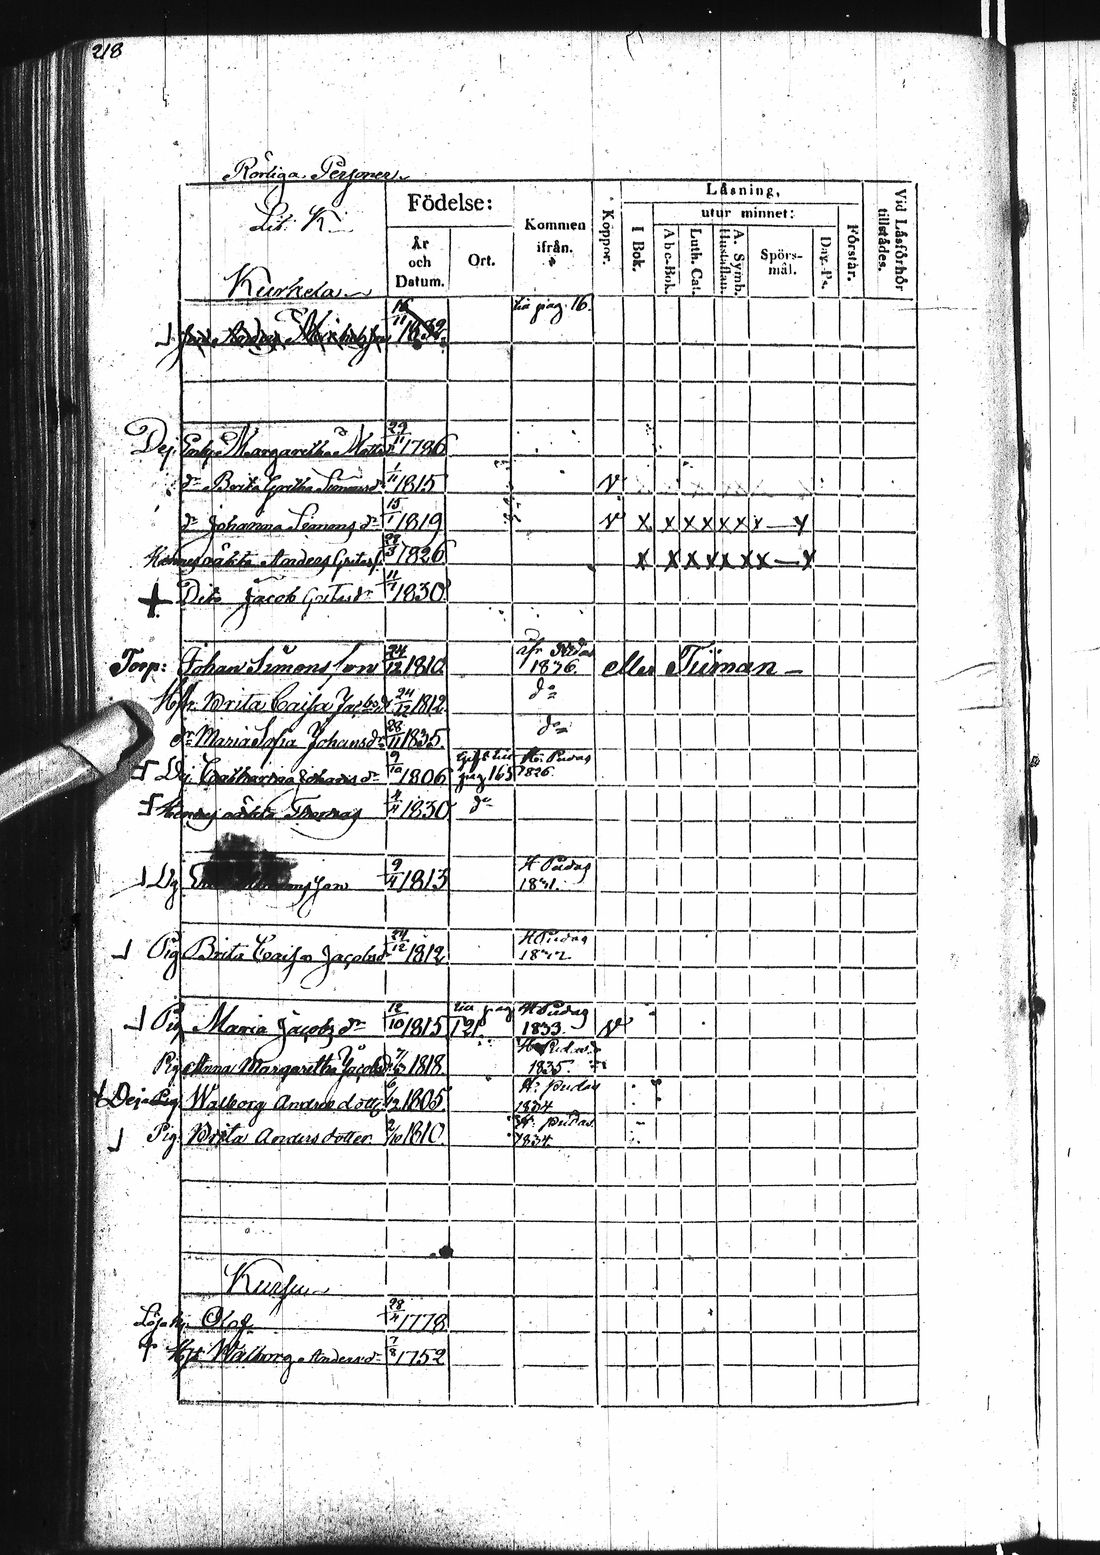 218
Rörliga Personer
Lit. K
Kurkela
Födelse:
År och Datum.
Ort.
Kommen ifrån.
Köppor.
Läsning,
I Bok.
utur minnet:
Abc-Bok.
Luth. Cat.
A. Symb. Hustaflan.
Spörs-mål.
Dav. Ps.
Förstår.
Vid Läsförhör tillstädes.
16/11 1832 til pag. 16.
Dej Enk. Margaretha Matts 29/11 1786
dr Brita Gretha Simonsdr 1/11 1815 V
dr Johanna Simons dr 15/1 1819 V X X X X X X X — X
Hennes oäkta Anders Gretas 28/3 1826 X X X X X X X — X
Dito Jacob Gretas 11/7 1830
Torp: Johan Simons son 24/12 1810 1836. eller Tiiman —
Hstr. Brita Caisa Jacobsdr 24/12 1812. do
dr Maria Sofia Johansdr 28/11 1835. do
Dej Catharina Johans dr 9/10 1806 Gift till pag 165 H. Pudas 1826
Hennes oäkta Thomas 4/4 1830 do
Dg 9/4 1813 H Pudas 1831.
Pig Brita Caisa Jacobsdr 24/12 1812 H Pudas
Pig Maria Jacobs dr 12/10 1815 till pag 121. H Pudas 1833. V
Pig Anna Margaretha Jacobsdr 7/3 1818. H Pudas 1835.
Dej Pig Walborg Anders dotter 6/12 1805. H. pudas 1834
Pig: Brita Anders dotter 2/10 1810 H. pudas 1834.
Kursu
Olof 28/4 1778
Hst Walborg Andersdr 7/8 1752